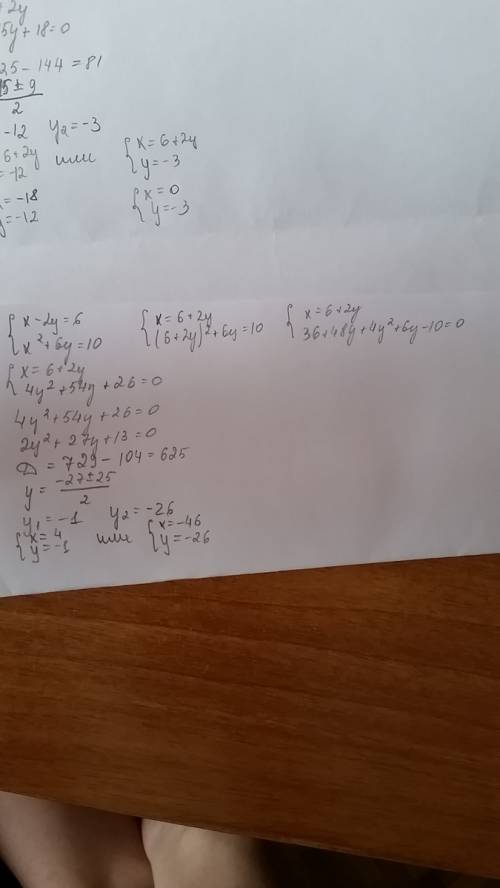 +2y
5y+18=0
25-144=81
15±9
2
-12 y₂=-3
6+2y или {x=6+2y
=-12 y=-3
=-18 {x=0
y=-12 y=-3
{x-2y=6 {x=6+2y {x=6+2y
x²+6y=10 (6+2y)²+6y=10 36+48y+4y²+6y-10=0
{x=6+2y
4y²+54y+26=0
4y²+54y+26=0
2y²+27y+13=0
D=729-104=625
y=-27±25
2
y₁=-1 y₂=-26
{x=4 или {x=-46
y=-1 y=-26